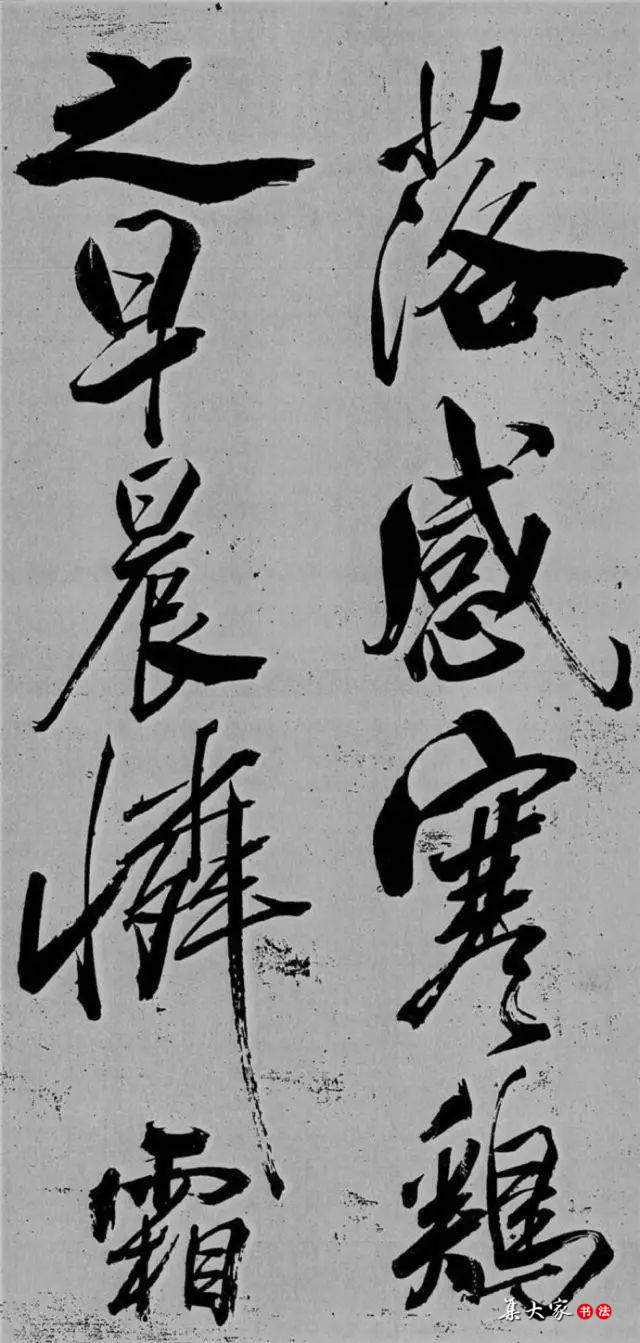 落感寒鷄
之早晨憐霜
集大家书法